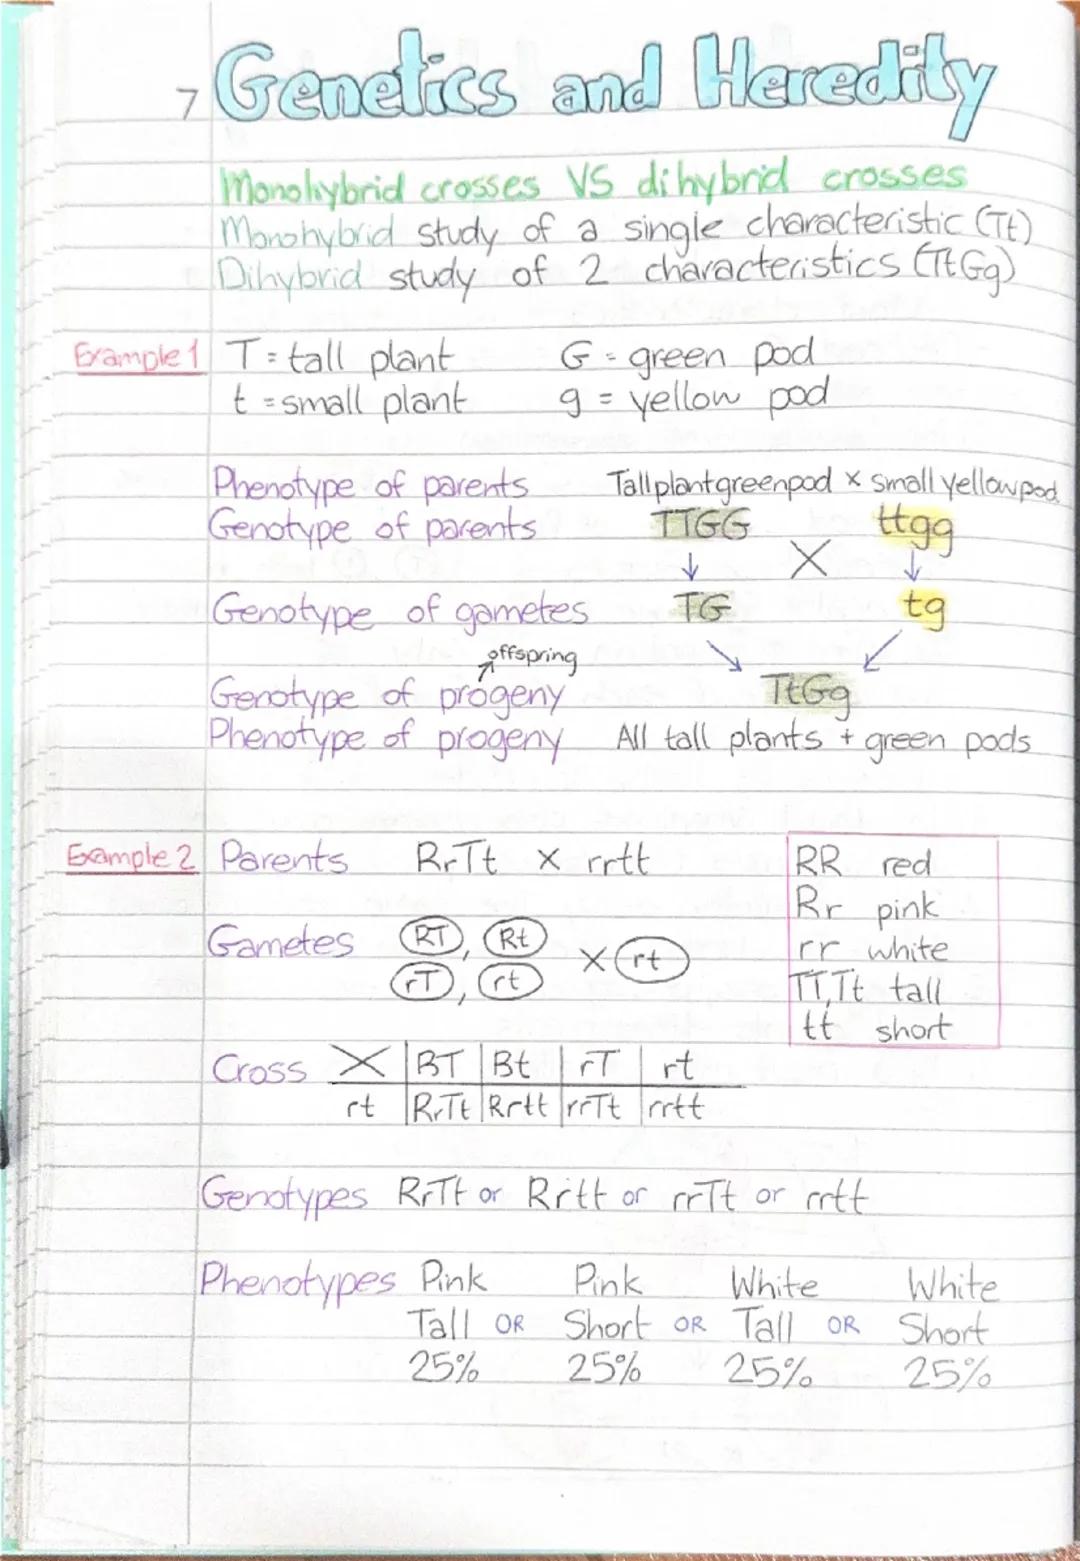 7 Genetics and Heredity
Monohybrid crosses VS dihybrid crosses
Monohybrid study of a single characteristic (Tt)
Dihybrid study of 2 characteristics (TtGg)
Example 1 T = tall plant G = green pod
t = small plant g = yellow pod
Phenotype of parents Tall plant green pod x small yellow pod
Genotype of parents TTGG ttgg
X
Genotype of gametes TG tg
offspring
Genotype of progeny TtGg
Phenotype of progeny All tall plants + green pods
Example 2 Parents RrTt x rrtt
RR red
Rr pink
rr white
TT, Tt tall
tt short
Gametes RT, Rt
rT, rt x rt
Cross X BT Bt rT rt
rt RrTt Rrtt rrTt rrtt
Genotypes RrTt or Rrtt or rrTt or rrtt
Phenotypes Pink Pink White White
Tall OR Short OR Tall OR Short
25% 25% 25% 25%